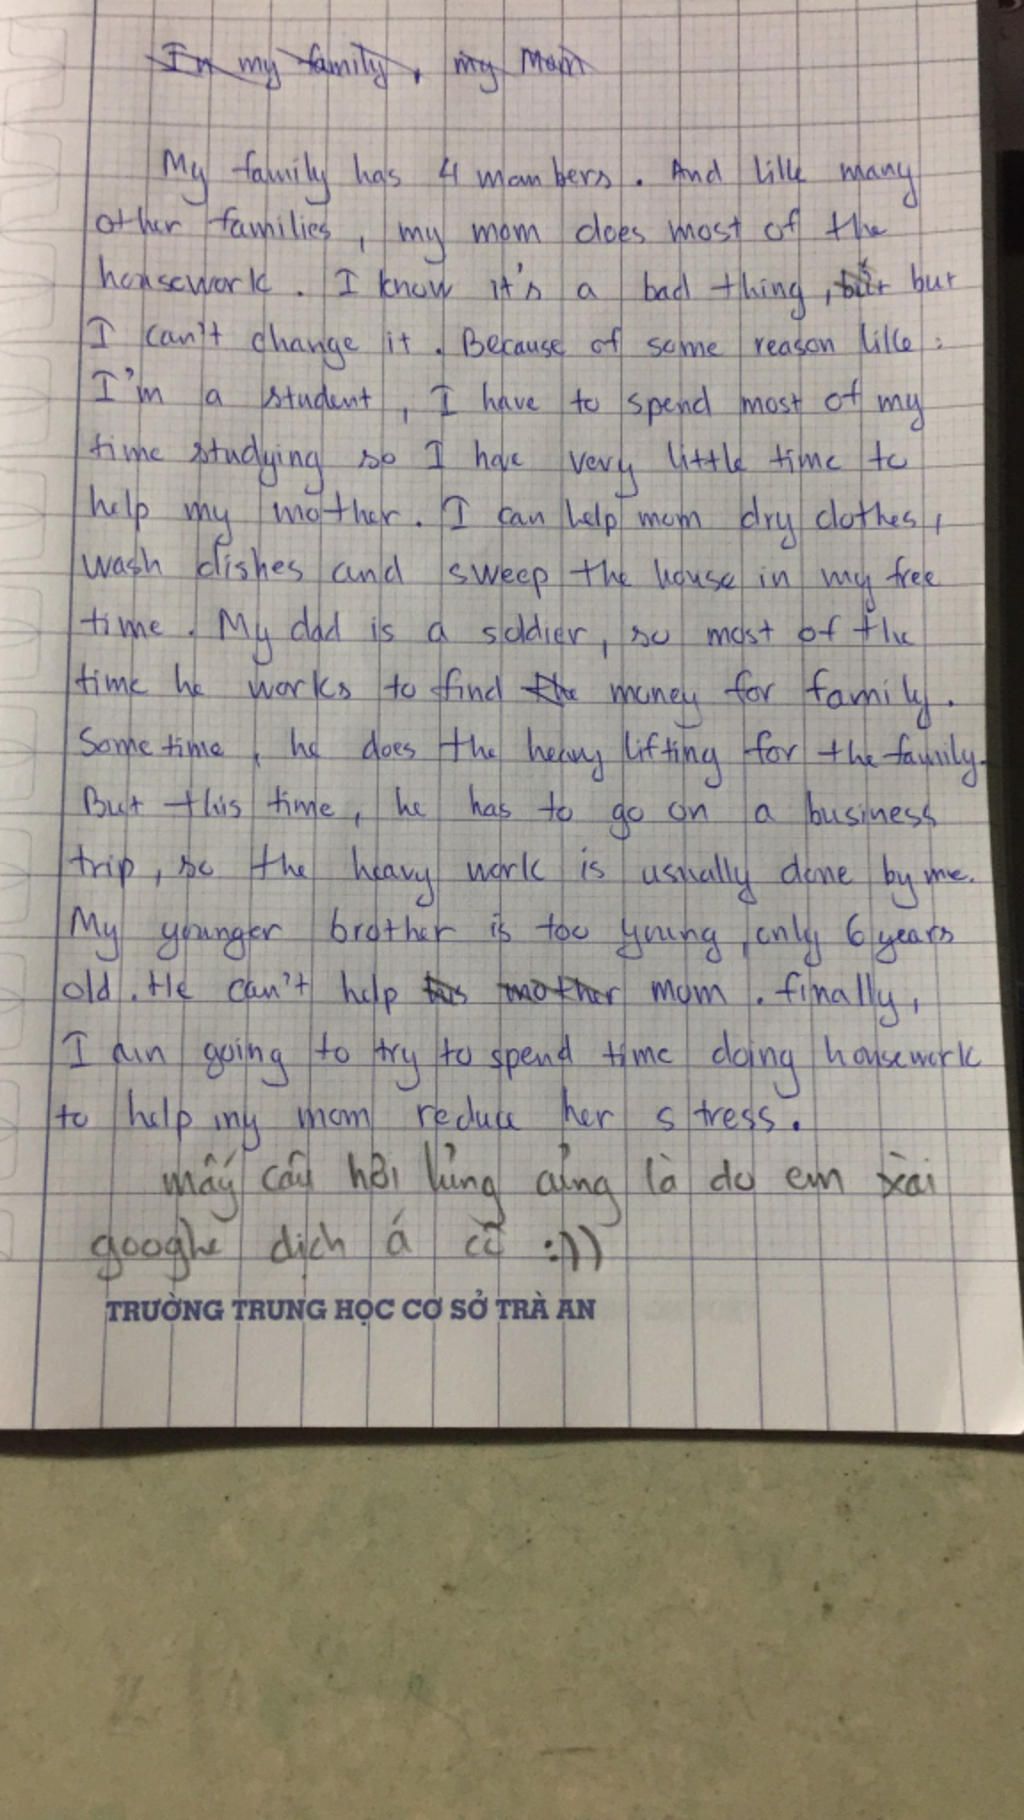 In my family, my mom
My family has 4 manbers. And like many
other families, my mom does most of the
housework. I know it's a bad thing, but but
I can't change it. Because of some reason like:
I'm a student, I have to spend most of my
time studying so I have very little time to
help my mother. I can help mom dry clothes,
wash dishes and sweep the house in my free
time. My dad is a soldier, so most of the
time he works to find the money for family.
Some time, he does the heavy lifting for the family.
But this time, he has to go on a business
trip, so the heavy work is usually done by me.
My younger brother is too young, only 6 years
old. He can't help his mother mom. finally,
I am going to try to spend time doing housework
to help my mom reduce her stress.
mấy câu hỏi lủng củng là do em xài
google dịch á cô :))
TRƯỜNG TRUNG HỌC CƠ SỞ TRÀ AN